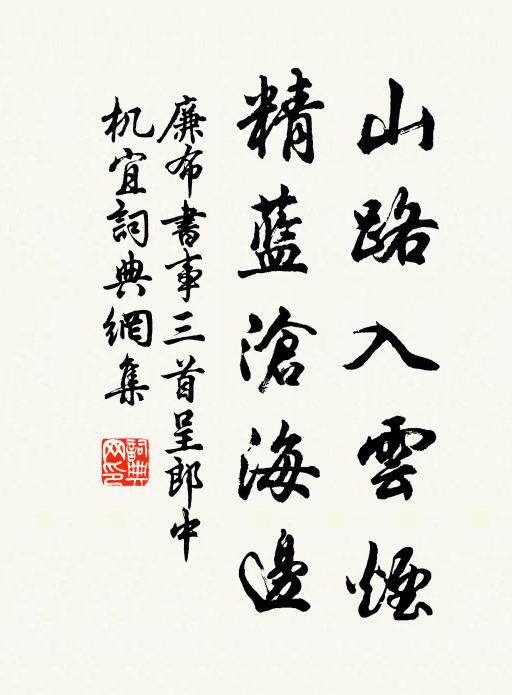 山路入雲煙
精藍滄海邊
廉布書事三首呈郎中
机宜詞典網集
詞典網印